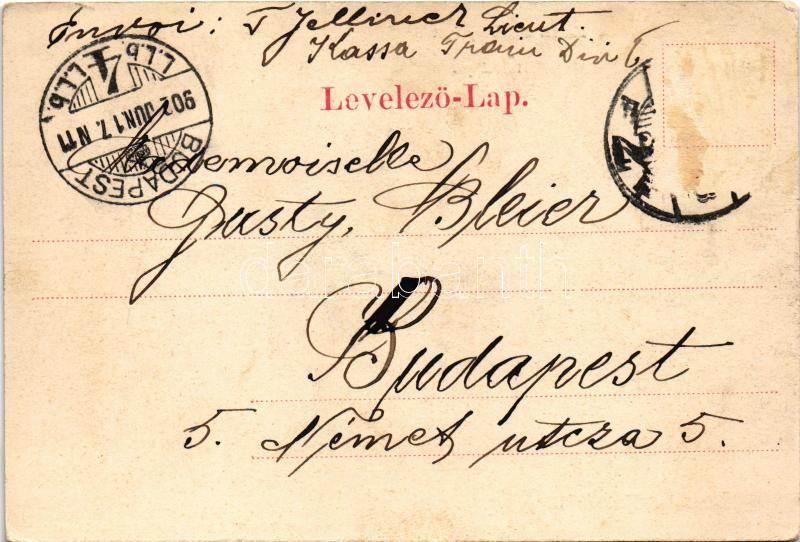 Envoi: F Jellinek Lieut.
Kassa Train Div 6
Levelező-Lap.
BUDAPEST
902 JUN 17. N 11
Mademoiselle
Gusty, Bleier
darabanth
Budapest
5. Német utcza 5.